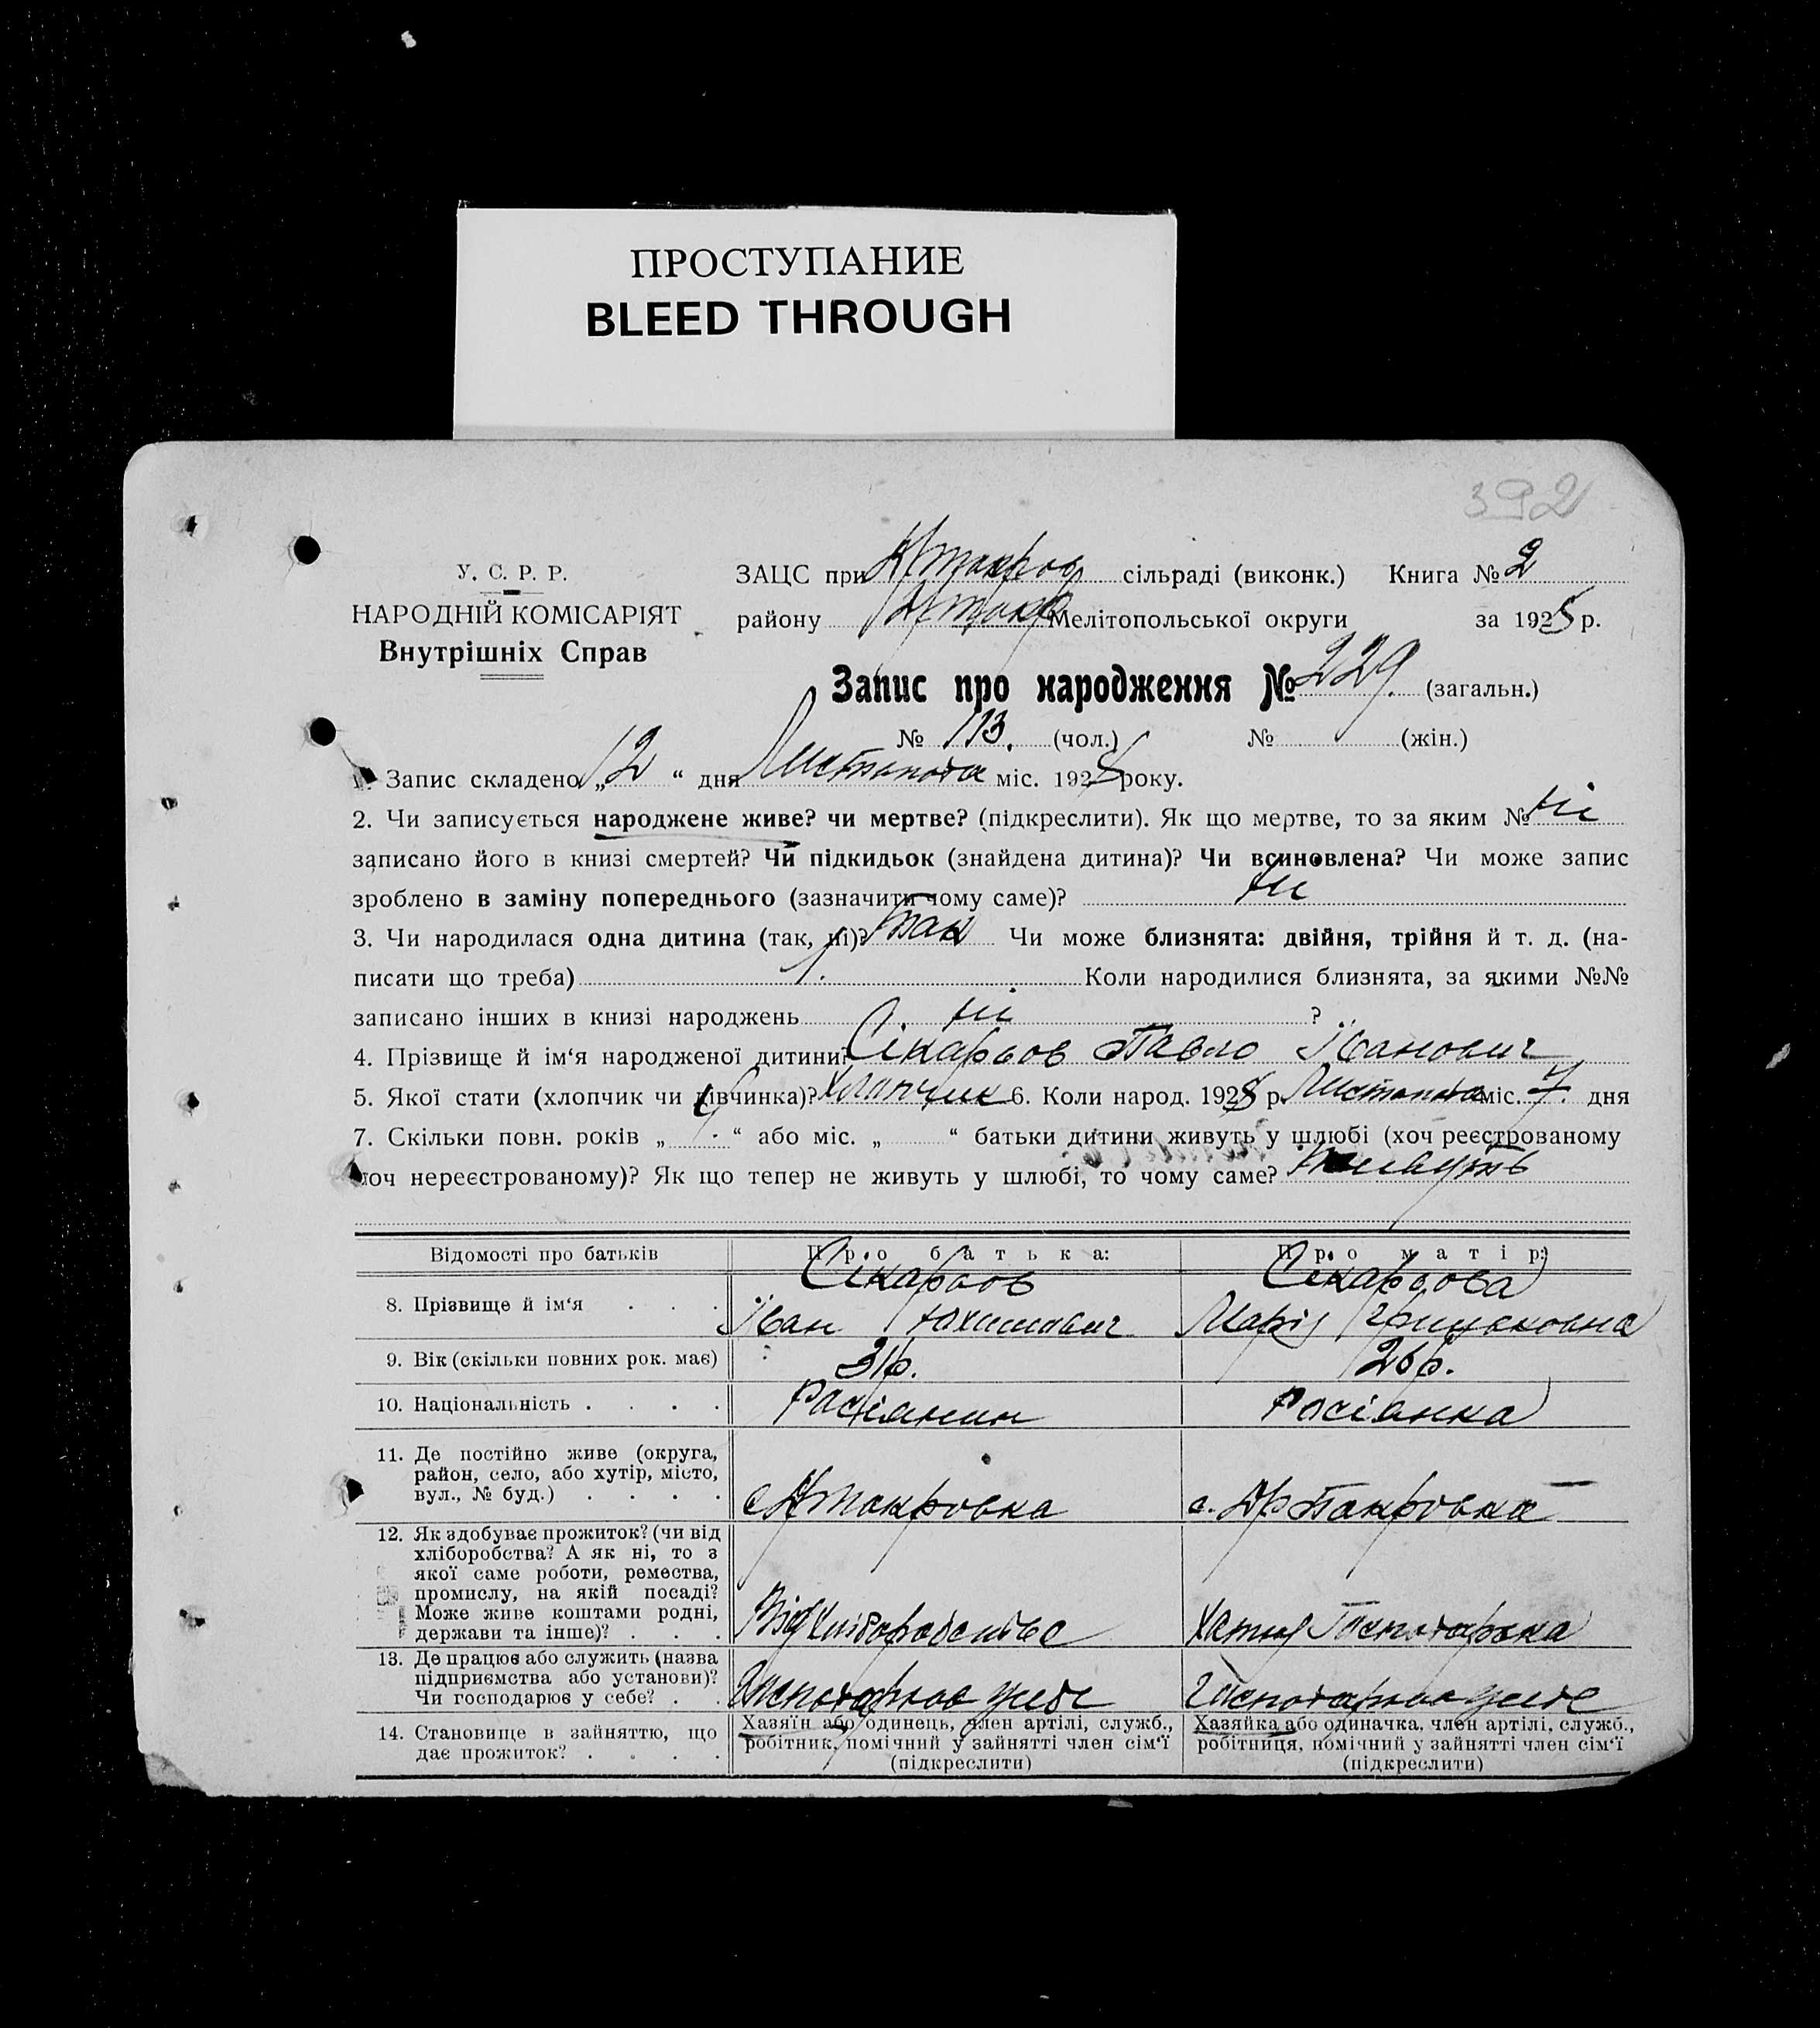 ПРОСТУПАНИЕ
BLEED THROUGH
392
У. С. Р. Р.
НАРОДНІЙ КОМІСАРІЯТ
Внутрішніх Справ
ЗАЦС при сільраді (виконк.) Книга № 2
району Мелітопольської округи за 192 р.
Запис про народження № 229. (загальн.)
№ 113. (чол.) № (жін.)
1. Запис складено „12“ дня Листопада міс. 192 року.
2. Чи записується народжене живе? чи мертве? (підкреслити). Як що мертве, то за яким № ні
записано його в книзі смертей? Чи підкидьок (знайдена дитина)? Чи всиновлена? Чи може запис
зроблено в заміну попереднього (зазначити чому саме)? ні
3. Чи народилася одна дитина (так, ні)? Так Чи може близнята: двійня, трійня й т. д. (на-
писати що треба) Коли народилися близнята, за якими №№
записано інших в книзі народжень ні ?
4. Прізвище й ім‘я народженої дитини? Сікарьов Павло Іванович
5. Якої стати (хлопчик чи дівчинка)? Хлопчик 6. Коли народ. 192 р. Листопада міс. 7. дня
7. Скільки повн. років „ “ або міс. „ “ батьки дитини живуть у шлюбі (хоч реєстрованому
хоч нереєстрованому)? Як що тепер не живуть у шлюбі, то чому саме? Живуть
Відомості про батьків Про батька: Про матір:
8. Прізвище й ім‘я . . . Сікарьов Сікарьова
Іван Юхимович Марія
9. Вік (скільки повних рок. має) 31р. 26р.
10. Національність . . . . Росіянин Росіянка
11. Де постійно живе (округа,
район, село, або хутір, місто,
вул., № буд.) . . . .
с. с.
12. Як здобуває прожиток? (чи від
хліборобства? А як ні, то з
якої саме роботи, ремества,
промислу, на якій посаді?
Може живе коштами родні,
держави та інше)? . . .
Від Хліборобства Хатня Господарька
13. Де працює або служить (назва
підприємства або установи)?
Чи господарює у себе? . .
Господарює у себе Господарює у себе
14. Становище в зайняттю, що
дає прожиток? . . . .
Хазяїн або одинець, член артілі, служб.,
робітник, помічний у зайнятті член сім‘ї
(підкреслити)
Хазяйка або одиначка, член артілі, служб.,
робітниця, помічний у зайнятті член сім‘ї
(підкреслити)